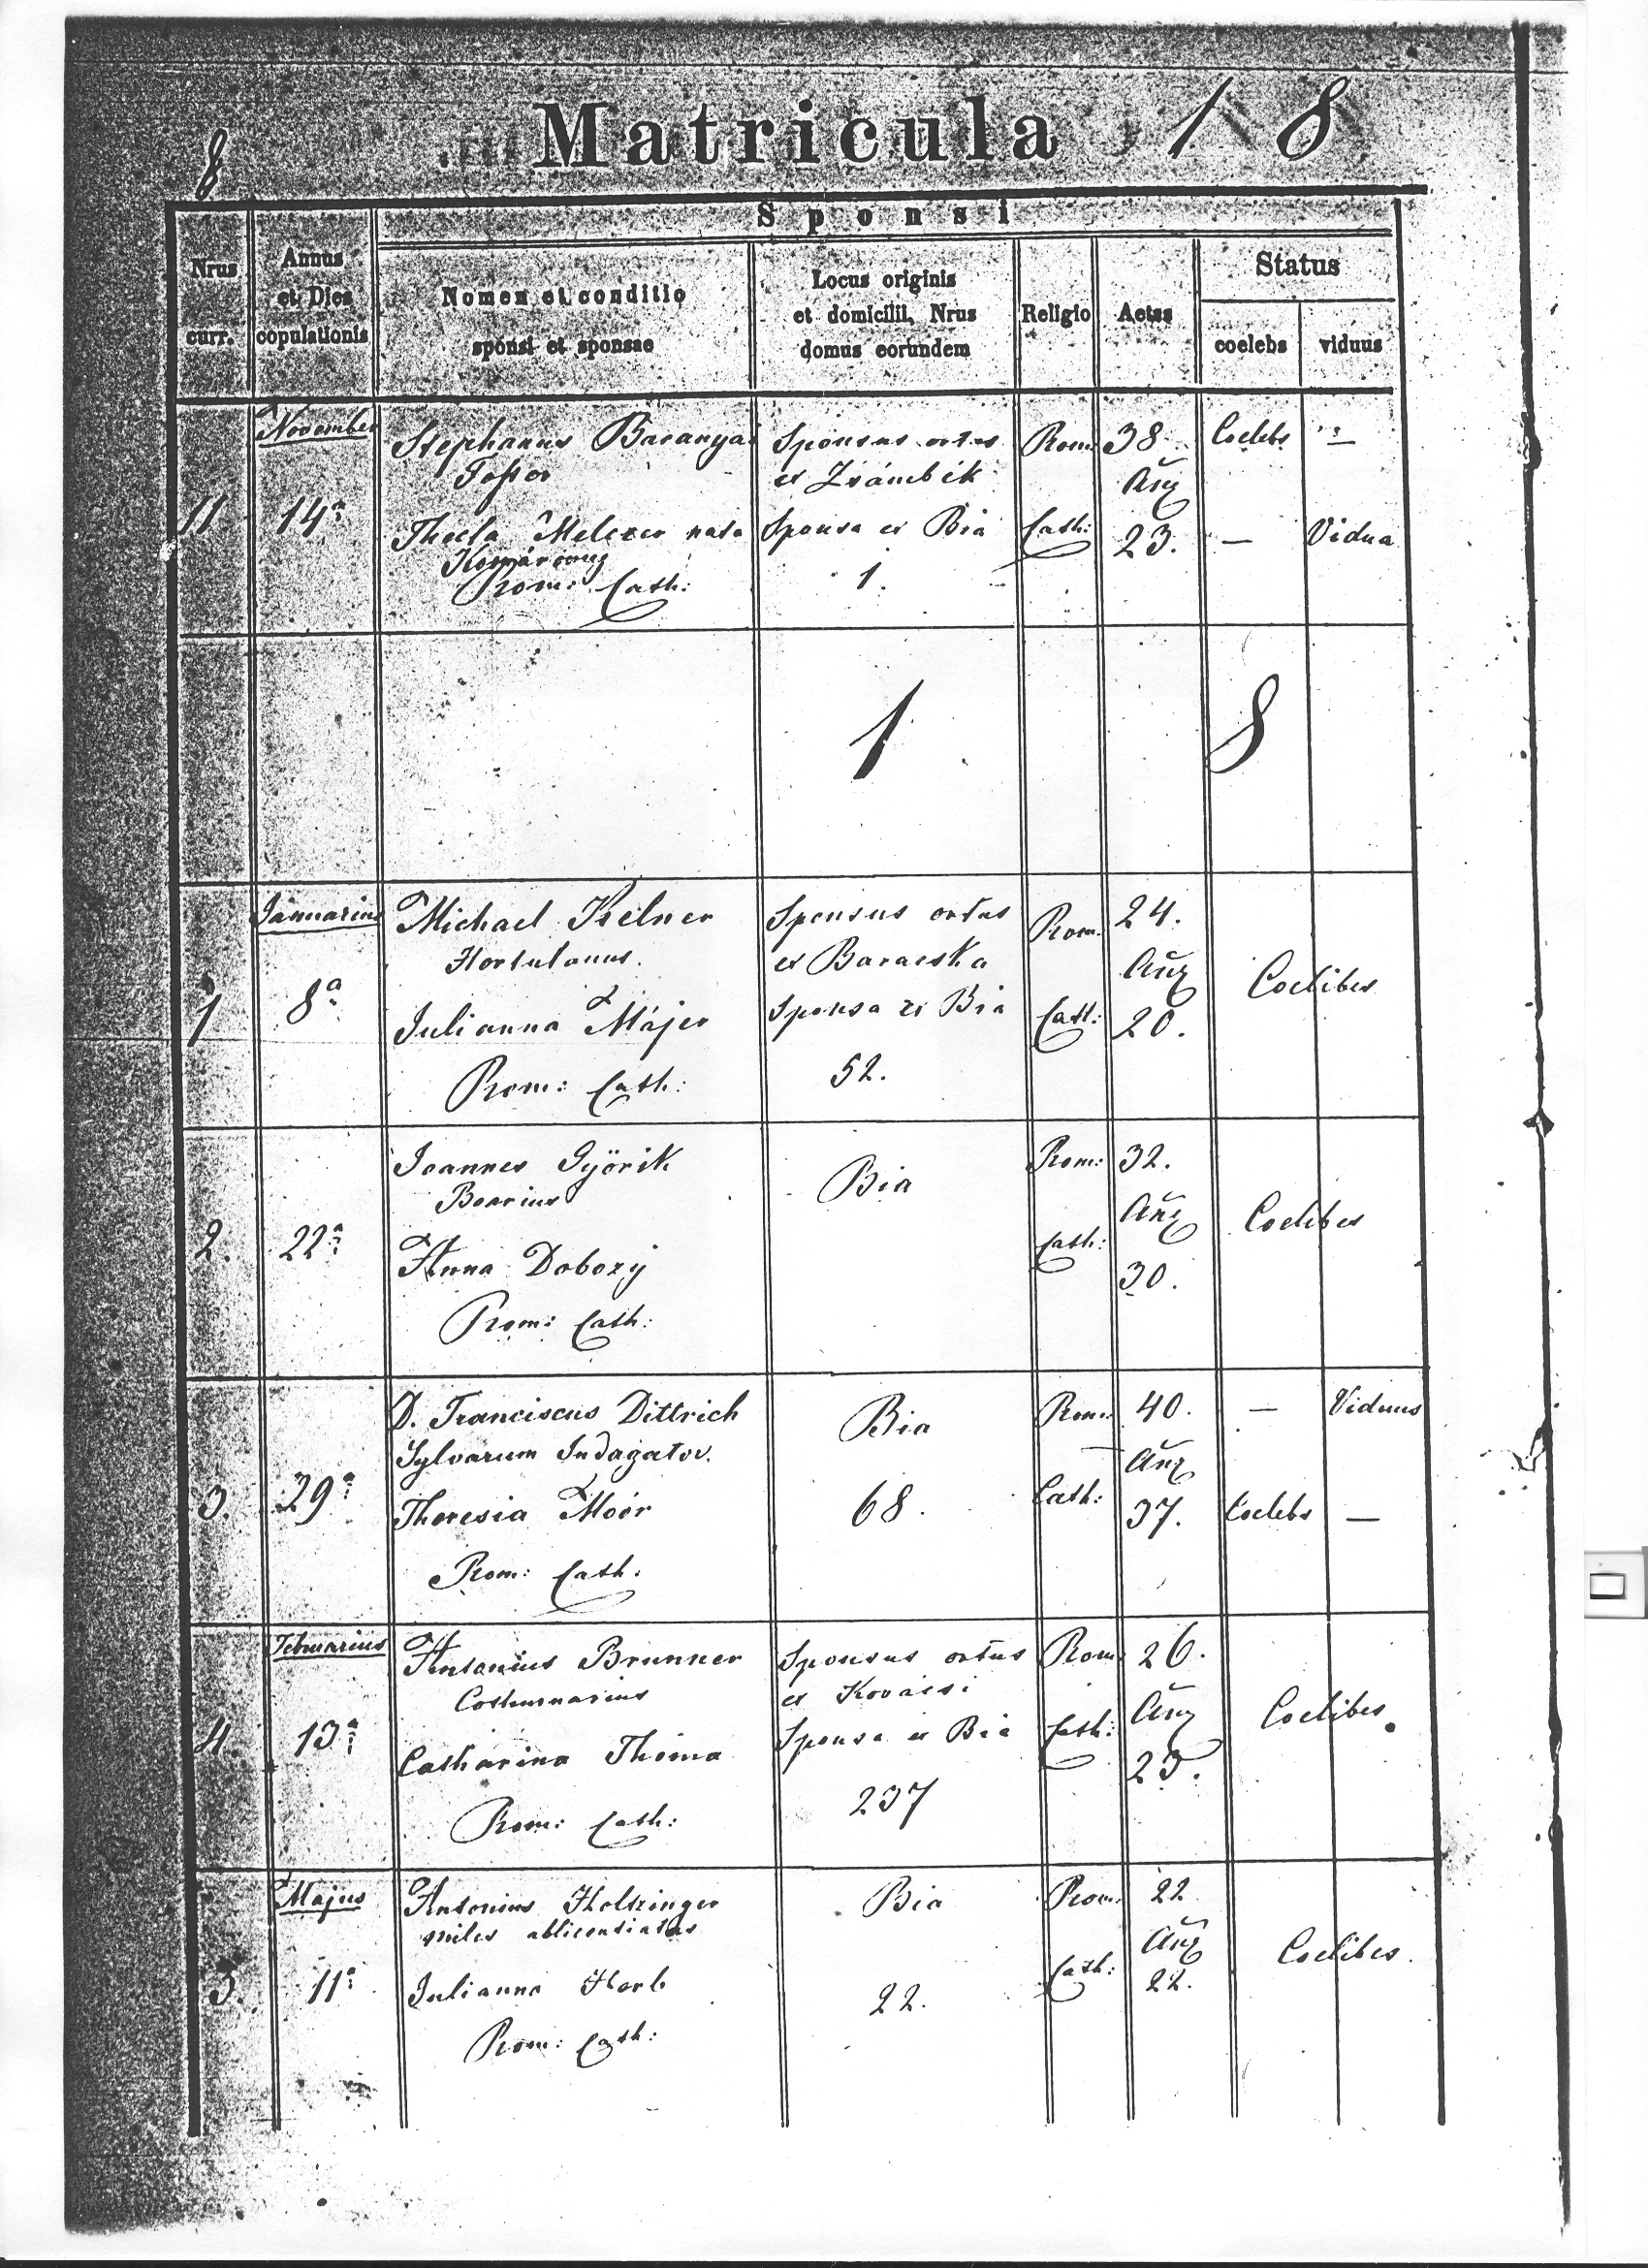 8
Matricula 1 8
Sponsi
Nrus
curr.
Annus
et Dies
copulationis
Nomen et conditio
sponsi et sponsae
Locus originis
et domicilii, Nrus
domus eorundem
Religio
Aetas
Status
coelebs
viduus
November
11
14a
Stephanus Baranyai
Thecla Melczer nata
Rom: Cath:
Sponsus ortus
ex Zsámbék
Sponsa ex Bia
1.
Rom:
Cath:
38
Añz
23.
Coelebs —
— Vidua
1 8
Januarius
1
8a
Michael Kelner
Hortulanus.
Julianna Májer
Rom: Cath:
Sponsus ortus
ex Baracska
Sponsa ex Bia
52.
Rom.
Cath:
24.
Añz
20.
Coelibes
2.
22a
Joannes Györik
Boarius
Anna Dobozÿ
Rom: Cath:
Bia
Rom:
Cath:
32.
Añz
30.
Coelibes
3.
29a
D. Franciscus Dittrich
Sylvarum Indagator.
Theresia Moór
Rom: Cath.
Bia
68.
Rom:
Cath:
40.
Añz
37.
— Viduus
Coelebs —
Februarius
4
13a
Antonius Brunner
Cothurnarius
Catharina Thoma
Rom: Cath:
Sponsus ortus
ex Kovácsi
Sponsa ex Bia
237
Rom:
Cath:
26.
Añz
23.
Coelibes
Majus
5.
11a
Antonius Holtzinger
miles ablicentiatus
Julianna Horb
Rom: Cath:
Bia
22.
Rom:
Cath:
22
Añz
22.
Coelibes.